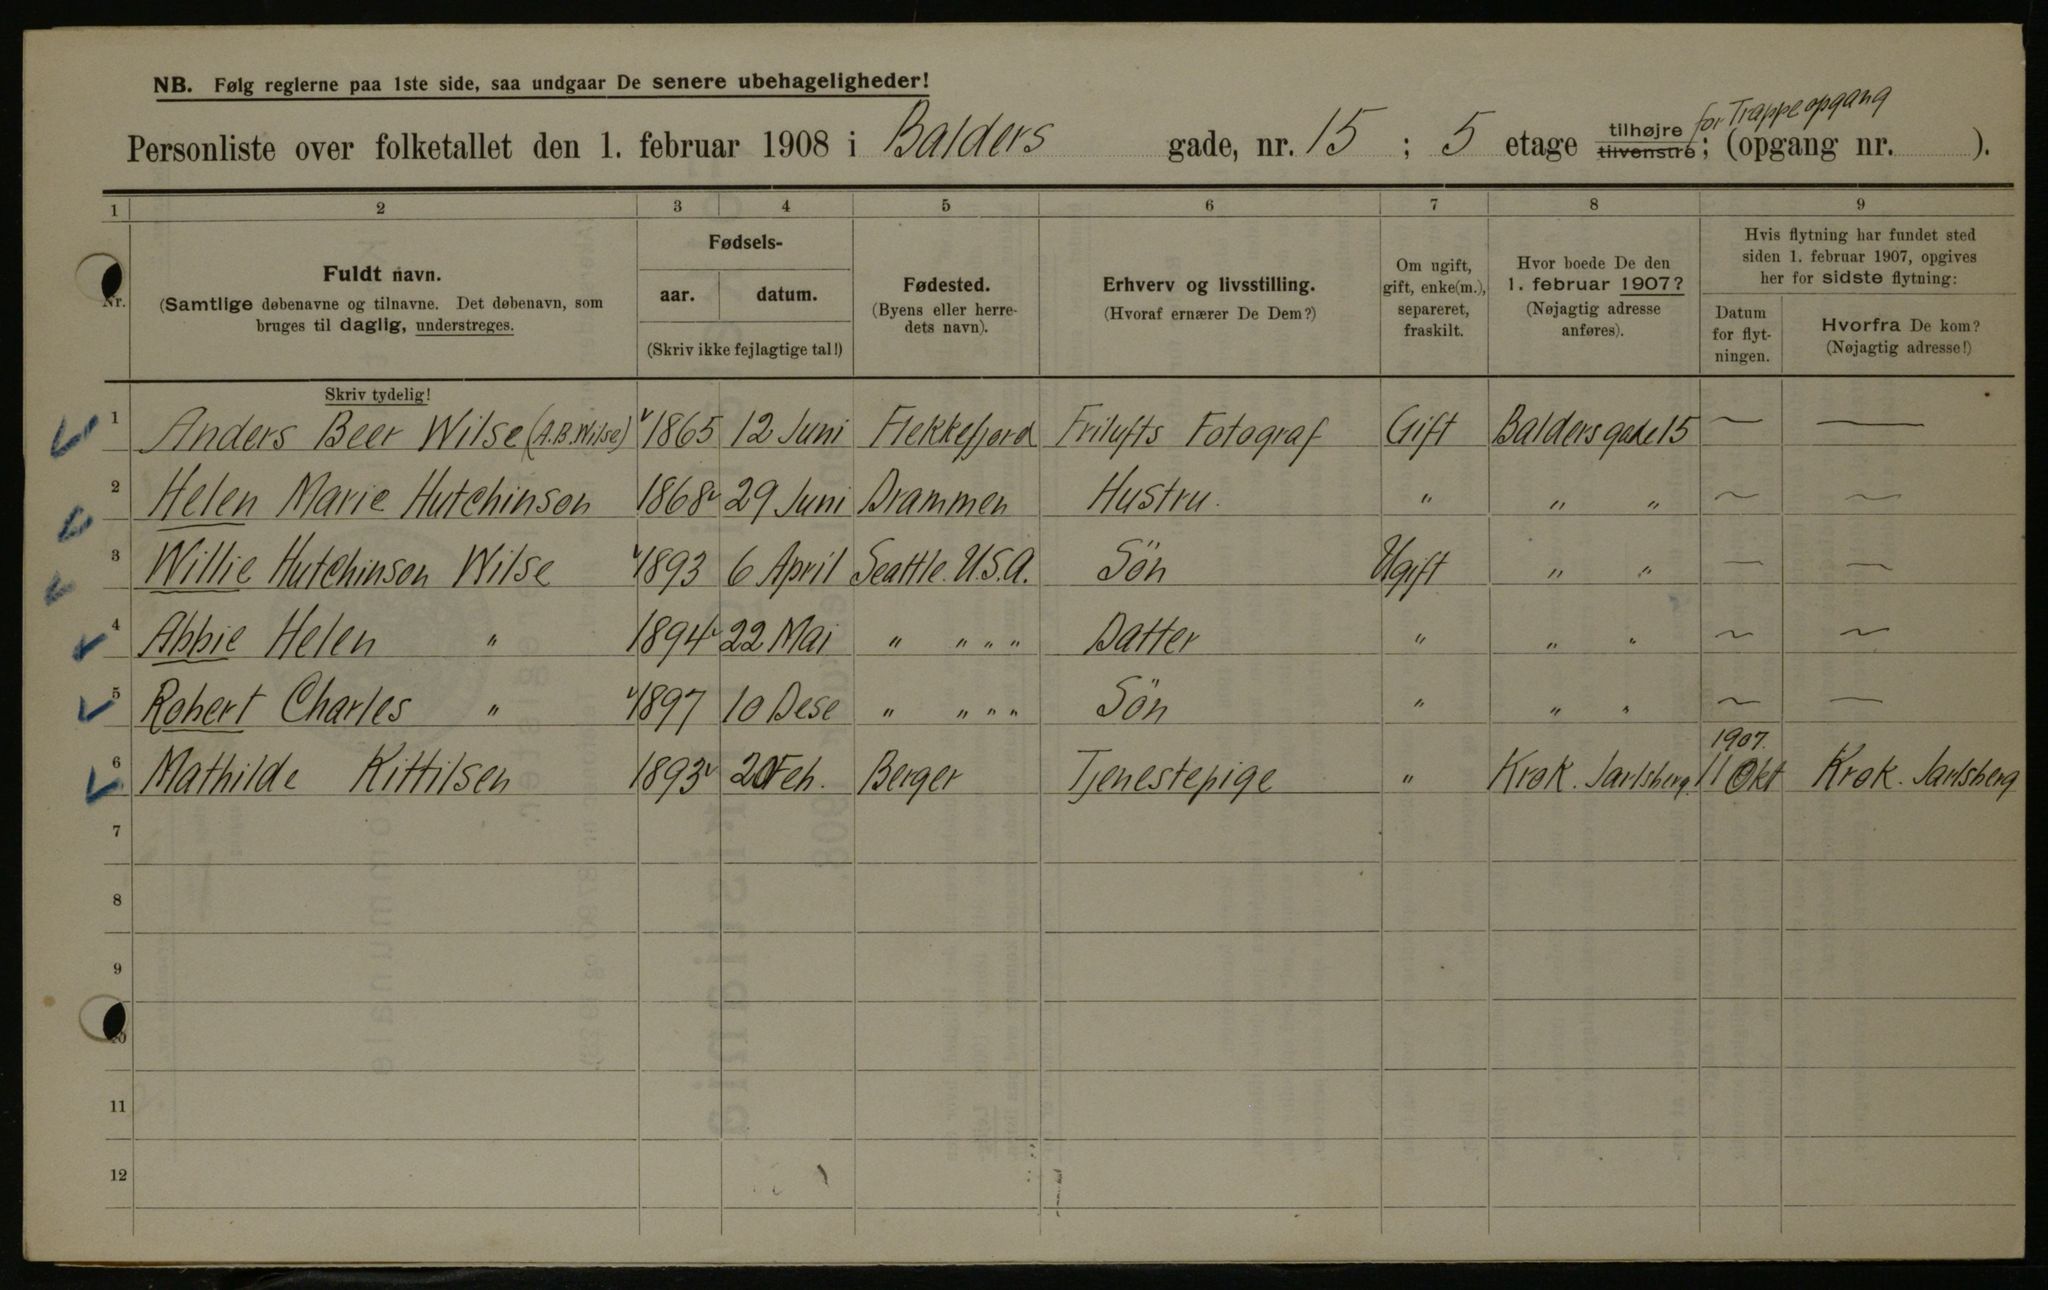 NB. Følg reglerne paa 1ste side, saa undgaar De senere ubehageligheder!
Personliste over folketallet den 1. februar 1908 i Balders gade, nr. 15 ; 5 etage tilhøjre tilvenstre ; for Trappeopgang (opgang nr. ).
1 2 3 4 5 6 7 8 9
Nr.
Fuldt navn.
(Samtlige døbenavne og tilnavne. Det døbenavn, som
bruges til daglig, understreges.
Skriv tydelig!
Fødsels-
aar. datum.
(Skriv ikke fejlagtige tal!)
Fødested.
(Byens eller herre-
dets navn).
Erhverv og livsstilling.
(Hvoraf ernærer De Dem?)
Om ugift,
gift, enke(m.),
separeret,
fraskilt.
Hvor boede De den
1. februar 1907?
(Nøjagtig adresse
anføres).
Hvis flytning har fundet sted
siden 1. februar 1907, opgives
her for sidste flytning:
Datum
for flyt-
ningen.
Hvorfra De kom?
(Nøjagtig adresse!)
1 Anders Beer Wilse (A.B.Wilse) 1865 12 Juni Flekkefjord Frilufts Fotograf Gift Baldersgade 15 ~ —
2 Helen Marie Hutchinson 1868 29 Juni Drammen Hustru. " " " ~ ~
3 Willie Hutchinson Wilse 1893 6 April Seattle. U.S.A. Sön Ugift " " — ~
4 Abbie Helen " 1894 22 Mai " " " " Datter " " " ~ ~
5 Robert Charles " 1897 10 Dese " " " " Sön " " " ~ —
6 Mathilde Kittilsen 1893 20 Feb. Berger Tjenestepige " Krok. Jarlsberg. 1907. 11 Okt Krok. Jarlsberg
7
8
9
10
11
12